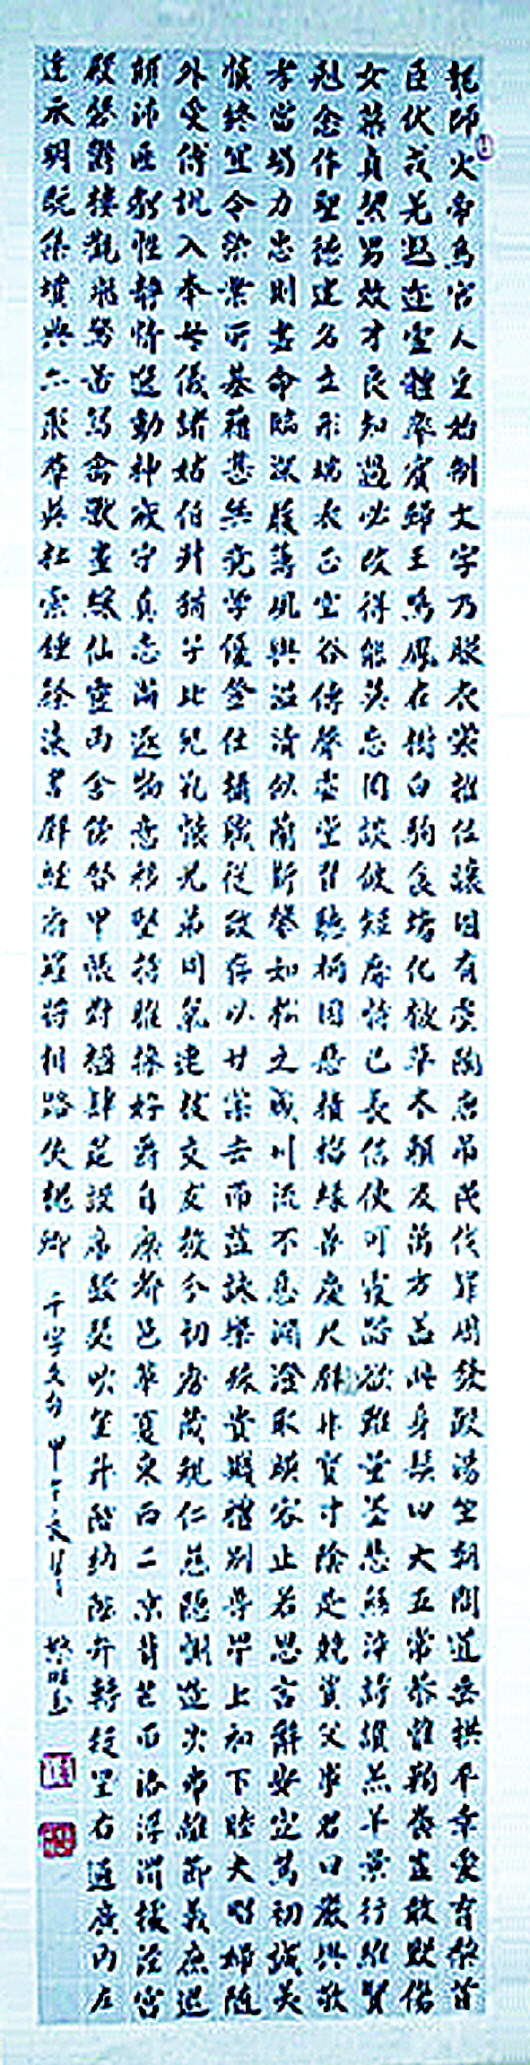 龍師火帝鳥官人皇始制文字乃服衣裳推位讓國有虞陶唐吊民伐罪周發殷湯坐朝問道垂拱平章愛育黎首
臣伏戎羌遐邇壹體率賓歸王鳴鳳在樹白駒食場化被草木賴及萬方蓋此身髮四大五常恭惟鞠養豈敢毀傷
女慕貞絜男效才良知過必改得能莫忘罔談彼短靡恃己長信使可覆器欲難量墨悲絲染詩讚羔羊景行維賢
剋念作聖德建名立形端表正空谷傳聲虛堂習聽禍因惡積福緣善慶尺璧非寶寸陰是競資父事君曰嚴與敬
孝當竭力忠則盡命臨深履薄夙興溫凊似蘭斯馨如松之盛川流不息淵澄取映容止若思言辭安定篤初誠美
慎終宜令榮業所基籍甚無竟學優登仕攝職從政存以甘棠去而益詠樂殊貴賤禮別尊卑上和下睦夫唱婦隨
外受傅訓入奉母儀諸姑伯叔猶子比兒孔懷兄弟同氣連枝交友投分切磨箴規仁慈隱惻造次弗離節義廉退
顛沛匪虧性靜情逸動神疲守真志滿逐物意移堅持雅操好爵自縻都邑華夏東西二京背邙面洛浮渭據涇宮
殿盤鬱樓觀飛驚圖寫禽獸畫綵仙靈丙舍傍啟甲帳對楹肆筵設席鼓瑟吹笙升階納陛弁轉疑星右通廣內左
達承明既集墳典亦聚群英杜稾鍾隸漆書壁經府羅將相路俠槐卿
千字文句 甲午夏